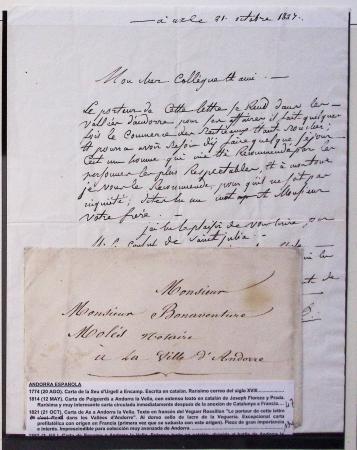 a axe 21 octobre 1821.
Mon cher Collègue et ami. —
Le porteur de cette lettre se rend dans les
vallées d'andorre pour ses affaires il fait quelque
fois le Commerce des
il pourra avoir besoin d'y faire quelque séjour
C'est un homme qui m'a été Recommandé par les
personnes les plus Respectables, et a mon tour
je vous le Recommande, pour qu'il ne soit pas
inquiété; dites lu un mot a Monsieur
votre frère. —
j'ai le plaisir de vous écrire, par
le consul de sant julia. —
Monsieur
Monsieur Bonaventure
Moles Notaire
à La Ville d'Andorre
ANDORRA ESPAÑOLA
1774 (20 AGO). Carta de la Seu d'Urgell a Encamp. Escrita en catalán. Rarísimo correo del siglo XVIII
1814 (12 MAY). Carta de Puigcerdà a Andorra la Vella, con extenso texto en catalán de Joseph Florenz y Prada.
Rarísima y muy interesante carta circulada inmediatamente después de la anexión de Catalunya a Francia.
1821 (21 OCT). Carta de Ax a Andorra la Vella. Texto en francés del Veguer Roussillon "Le porteur de cette lettre
dans les Vallées d'Andorre". Al dorso sello de lacre de la Veguería. Excepcional carta
prefilatélica con origen en Francia (primera vez que se subasta con este origen). Pieza de gran importancia
histórica. Imprescindible para colección muy avanzada de Andorra.